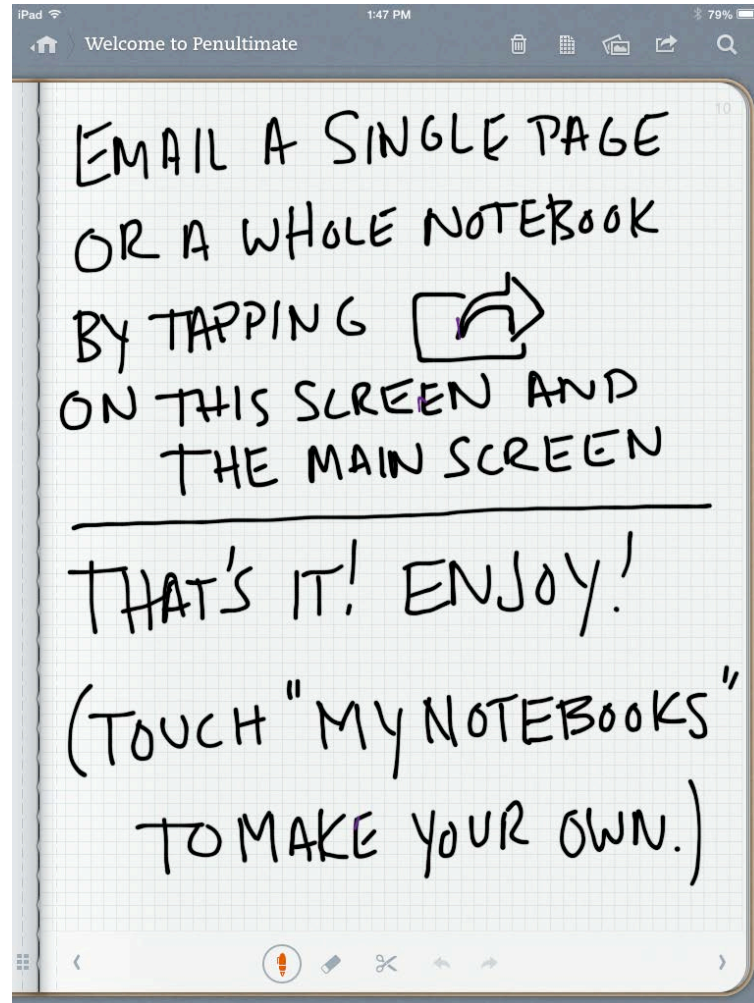 iPad 1:47 PM 79%
Welcome to Penultimate
10
EMAIL A SINGLE PAGE
OR A WHOLE NOTEBOOK
BY TAPPING
ON THIS SCREEN AND
THE MAIN SCREEN
THAT'S IT! ENJOY!
(TOUCH "MY NOTEBOOKS"
TO MAKE YOUR OWN.)